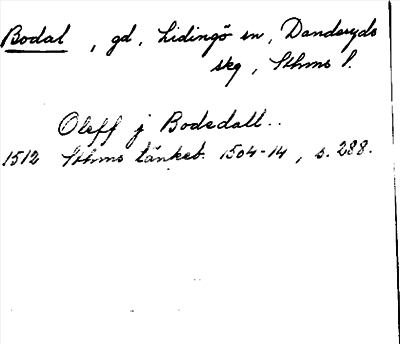 Bodal, gd, Lidingö sn, Danderyds
skg, Sthms l.
Oleff j Bodedall..
1512 Sthms tänkeb. 1504-14, s. 288.